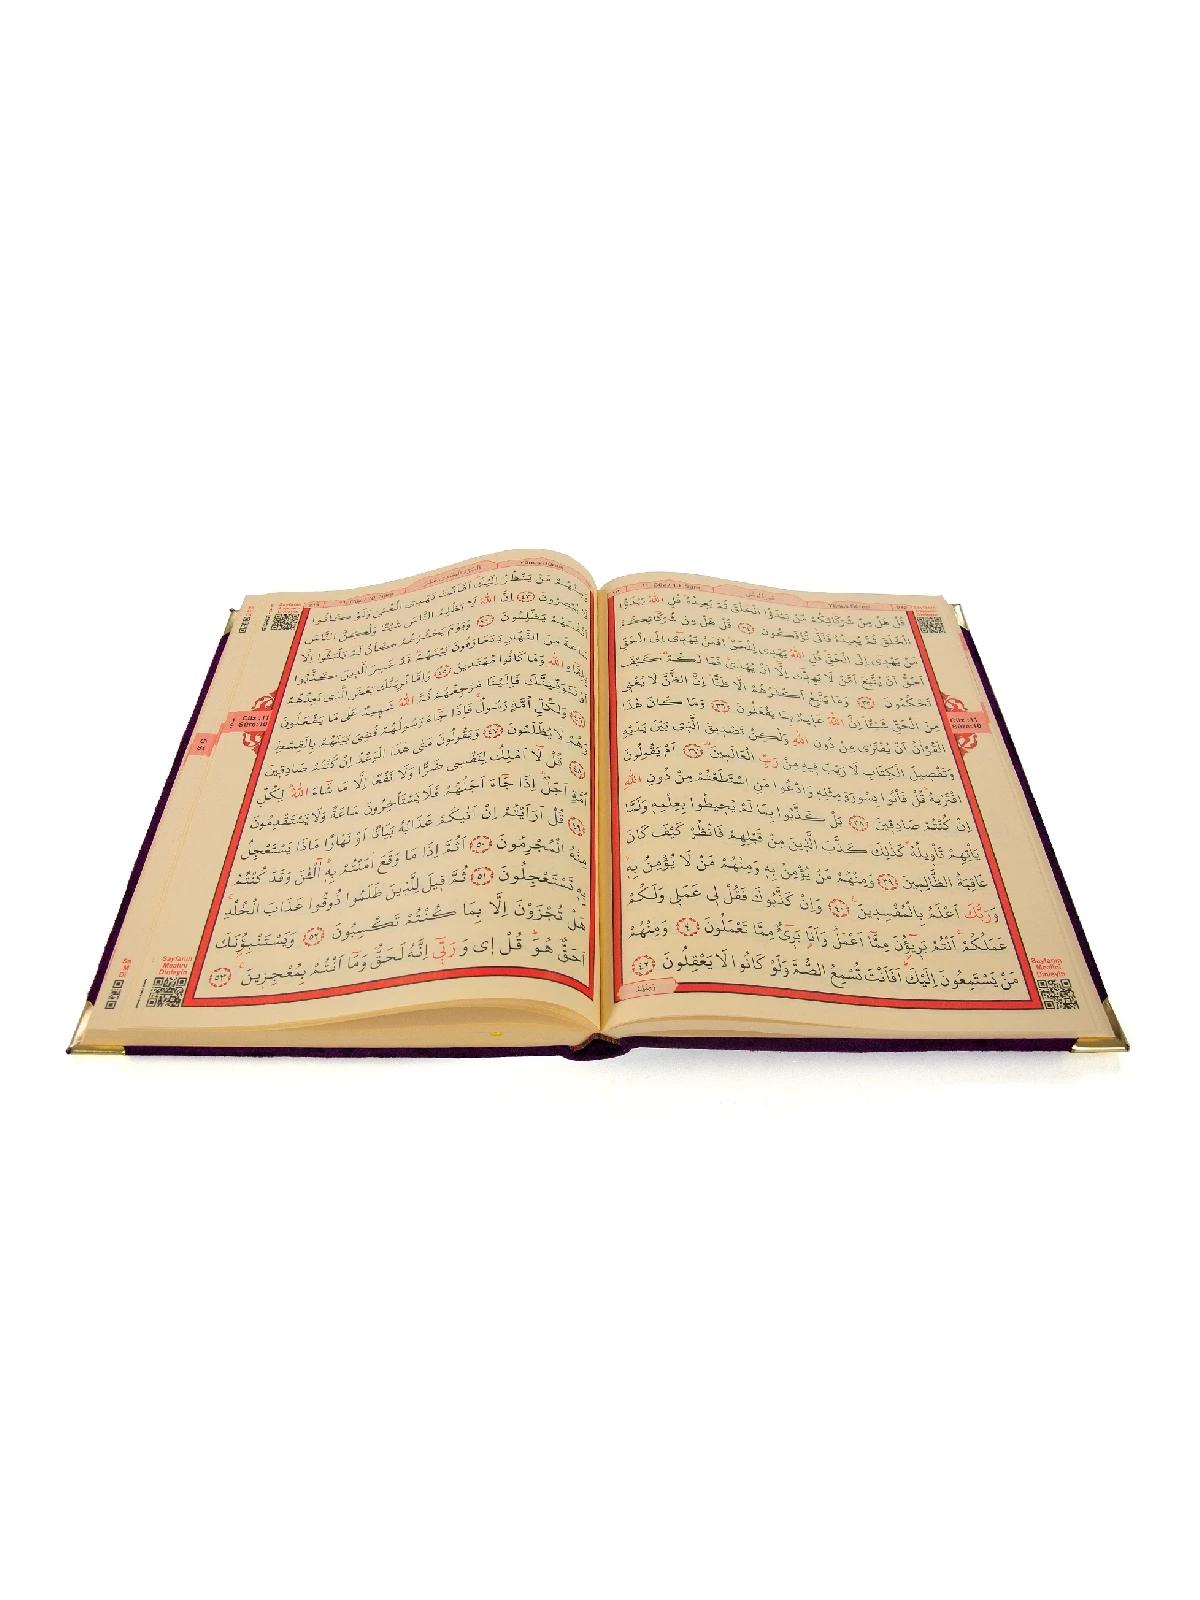 Cüz :11
Sûre:10
قُلْ هَلْ مِنْ شُرَكَائِكُمْ مَنْ يَبْدَؤُا الْخَلْقَ ثُمَّ يُعِيدُهُ قُلِ اللّٰهُ يَبْدَؤُا
الْخَلْقَ ثُمَّ يُعِيدُهُ فَاَنّٰى تُؤْفَكُونَ ﴿٣٤﴾ قُلْ هَلْ مِنْ شُرَكَائِكُمْ
مَنْ يَهْدٖٓى اِلَى الْحَقِّ قُلِ اللّٰهُ يَهْدٖى لِلْحَقِّ اَفَمَنْ يَهْدٖٓى اِلَى الْحَقِّ
اَحَقُّ اَنْ يُتَّبَعَ اَمَّنْ لَا يَهِدّٖٓى اِلَّٓا اَنْ يُهْدٰى فَمَا لَكُمْ كَيْفَ
تَحْكُمُونَ ﴿٣٥﴾ وَمَا يَتَّبِعُ اَكْثَرُهُمْ اِلَّا ظَنًّا اِنَّ الظَّنَّ لَا يُغْنٖى
مِنَ الْحَقِّ شَيْـًٔا اِنَّ اللّٰهَ عَلٖيمٌ بِمَا يَفْعَلُونَ ﴿٣٦﴾ وَمَا كَانَ هٰذَا
الْقُرْاٰنُ اَنْ يُفْتَرٰى مِنْ دُونِ اللّٰهِ وَلٰكِنْ تَصْدٖيقَ الَّذٖى بَيْنَ يَدَيْهِ
وَتَفْصٖيلَ الْكِتَابِ لَا رَيْبَ فٖيهِ مِنْ رَبِّ الْعَالَمٖينَ ﴿٣٧﴾ اَمْ يَقُولُونَ
افْتَرٰيهُ قُلْ فَأْتُوا بِسُورَةٍ مِثْلِهٖ وَادْعُوا مَنِ اسْتَطَعْتُمْ مِنْ دُونِ اللّٰهِ
اِنْ كُنْتُمْ صَادِقٖينَ ﴿٣٨﴾ بَلْ كَذَّبُوا بِمَا لَمْ يُحٖيطُوا بِعِلْمِهٖ وَلَمَّا
يَأْتِهِمْ تَأْوٖيلُهُ كَذٰلِكَ كَذَّبَ الَّذٖينَ مِنْ قَبْلِهِمْ فَانْظُرْ كَيْفَ كَانَ
عَاقِبَةُ الظَّالِمٖينَ ﴿٣٩﴾ وَمِنْهُمْ مَنْ يُؤْمِنُ بِهٖ وَمِنْهُمْ مَنْ لَا يُؤْمِنُ بِهٖ
وَرَبُّكَ اَعْلَمُ بِالْمُفْسِدٖينَ ﴿٤٠﴾ وَاِنْ كَذَّبُوكَ فَقُلْ لٖى عَمَلٖى وَلَكُمْ
عَمَلُكُمْ اَنْتُمْ بَرٖٓيؤُنَ مِمَّٓا اَعْمَلُ وَاَنَا بَرٖٓىءٌ مِمَّا تَعْمَلُونَ ﴿٤١﴾ وَمِنْهُمْ
مَنْ يَسْتَمِعُونَ اِلَيْكَ اَفَاَنْتَ تُسْمِعُ الصُّمَّ وَلَوْ كَانُوا لَا يَعْقِلُونَ ﴿٤٢﴾
وَمِنْهُمْ
Sayfanın
Mealini
Dinleyin
Cüz :11
Sûre:10
وَمِنْهُمْ مَنْ يَنْظُرُ اِلَيْكَ اَفَاَنْتَ تَهْدِى الْعُمْىَ وَلَوْ كَانُوا
لَا يُبْصِرُونَ ﴿٤٣﴾ اِنَّ اللّٰهَ لَا يَظْلِمُ النَّاسَ شَيْـًٔا وَلٰكِنَّ النَّاسَ
اَنْفُسَهُمْ يَظْلِمُونَ ﴿٤٤﴾ وَيَوْمَ يَحْشُرُهُمْ كَاَنْ لَمْ يَلْبَثُٓوا اِلَّا
سَاعَةً مِنَ النَّهَارِ يَتَعَارَفُونَ بَيْنَهُمْ قَدْ خَسِرَ الَّذٖينَ كَذَّبُوا
بِلِقَٓاءِ اللّٰهِ وَمَا كَانُوا مُهْتَدٖينَ ﴿٤٥﴾ وَاِمَّا نُرِيَنَّكَ بَعْضَ الَّذٖى نَعِدُهُمْ
اَوْ نَتَوَفَّيَنَّكَ فَاِلَيْنَا مَرْجِعُهُمْ ثُمَّ اللّٰهُ شَهٖيدٌ عَلٰى مَا يَفْعَلُونَ
﴿٤٦﴾ وَلِكُلِّ اُمَّةٍ رَسُولٌ فَاِذَا جَٓاءَ رَسُولُهُمْ قُضِىَ بَيْنَهُمْ بِالْقِسْطِ
وَهُمْ لَا يُظْلَمُونَ ﴿٤٧﴾ وَيَقُولُونَ مَتٰى هٰذَا الْوَعْدُ اِنْ كُنْتُمْ صَادِقٖينَ
﴿٤٨﴾ قُلْ لَٓا اَمْلِكُ لِنَفْسٖى ضَرًّا وَلَا نَفْعًا اِلَّا مَا شَٓاءَ اللّٰهُ لِكُلِّ
اُمَّةٍ اَجَلٌ اِذَا جَٓاءَ اَجَلُهُمْ فَلَا يَسْتَأْخِرُونَ سَاعَةً وَلَا يَسْتَقْدِمُونَ
﴿٤٩﴾ قُلْ اَرَاَيْتُمْ اِنْ اَتٰيكُمْ عَذَابُهُ بَيَاتًا اَوْ نَهَارًا مَاذَا يَسْتَعْجِلُ
مِنْهُ الْمُجْرِمُونَ ﴿٥٠﴾ اَثُمَّ اِذَا مَا وَقَعَ اٰمَنْتُمْ بِهٖ اٰلْـٰٔنَ وَقَدْ كُنْتُمْ
بِهٖ تَسْتَعْجِلُونَ ﴿٥١﴾ ثُمَّ قٖيلَ لِلَّذٖينَ ظَلَمُوا ذُوقُوا عَذَابَ الْخُلْدِ
هَلْ تُجْزَوْنَ اِلَّا بِمَا كُنْتُمْ تَكْسِبُونَ ﴿٥٢﴾ وَيَسْتَنْبِؤُنَكَ
اَحَقٌّ هُوَ قُلْ اٖى وَرَبّٖٓى اِنَّهُ لَحَقٌّ وَمَٓا اَنْتُمْ بِمُعْجِزٖينَ ﴿٥٣﴾
Sayfanın
Mealini
Dinleyin